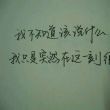 我不知道该说什么
我只是突然在这一刻